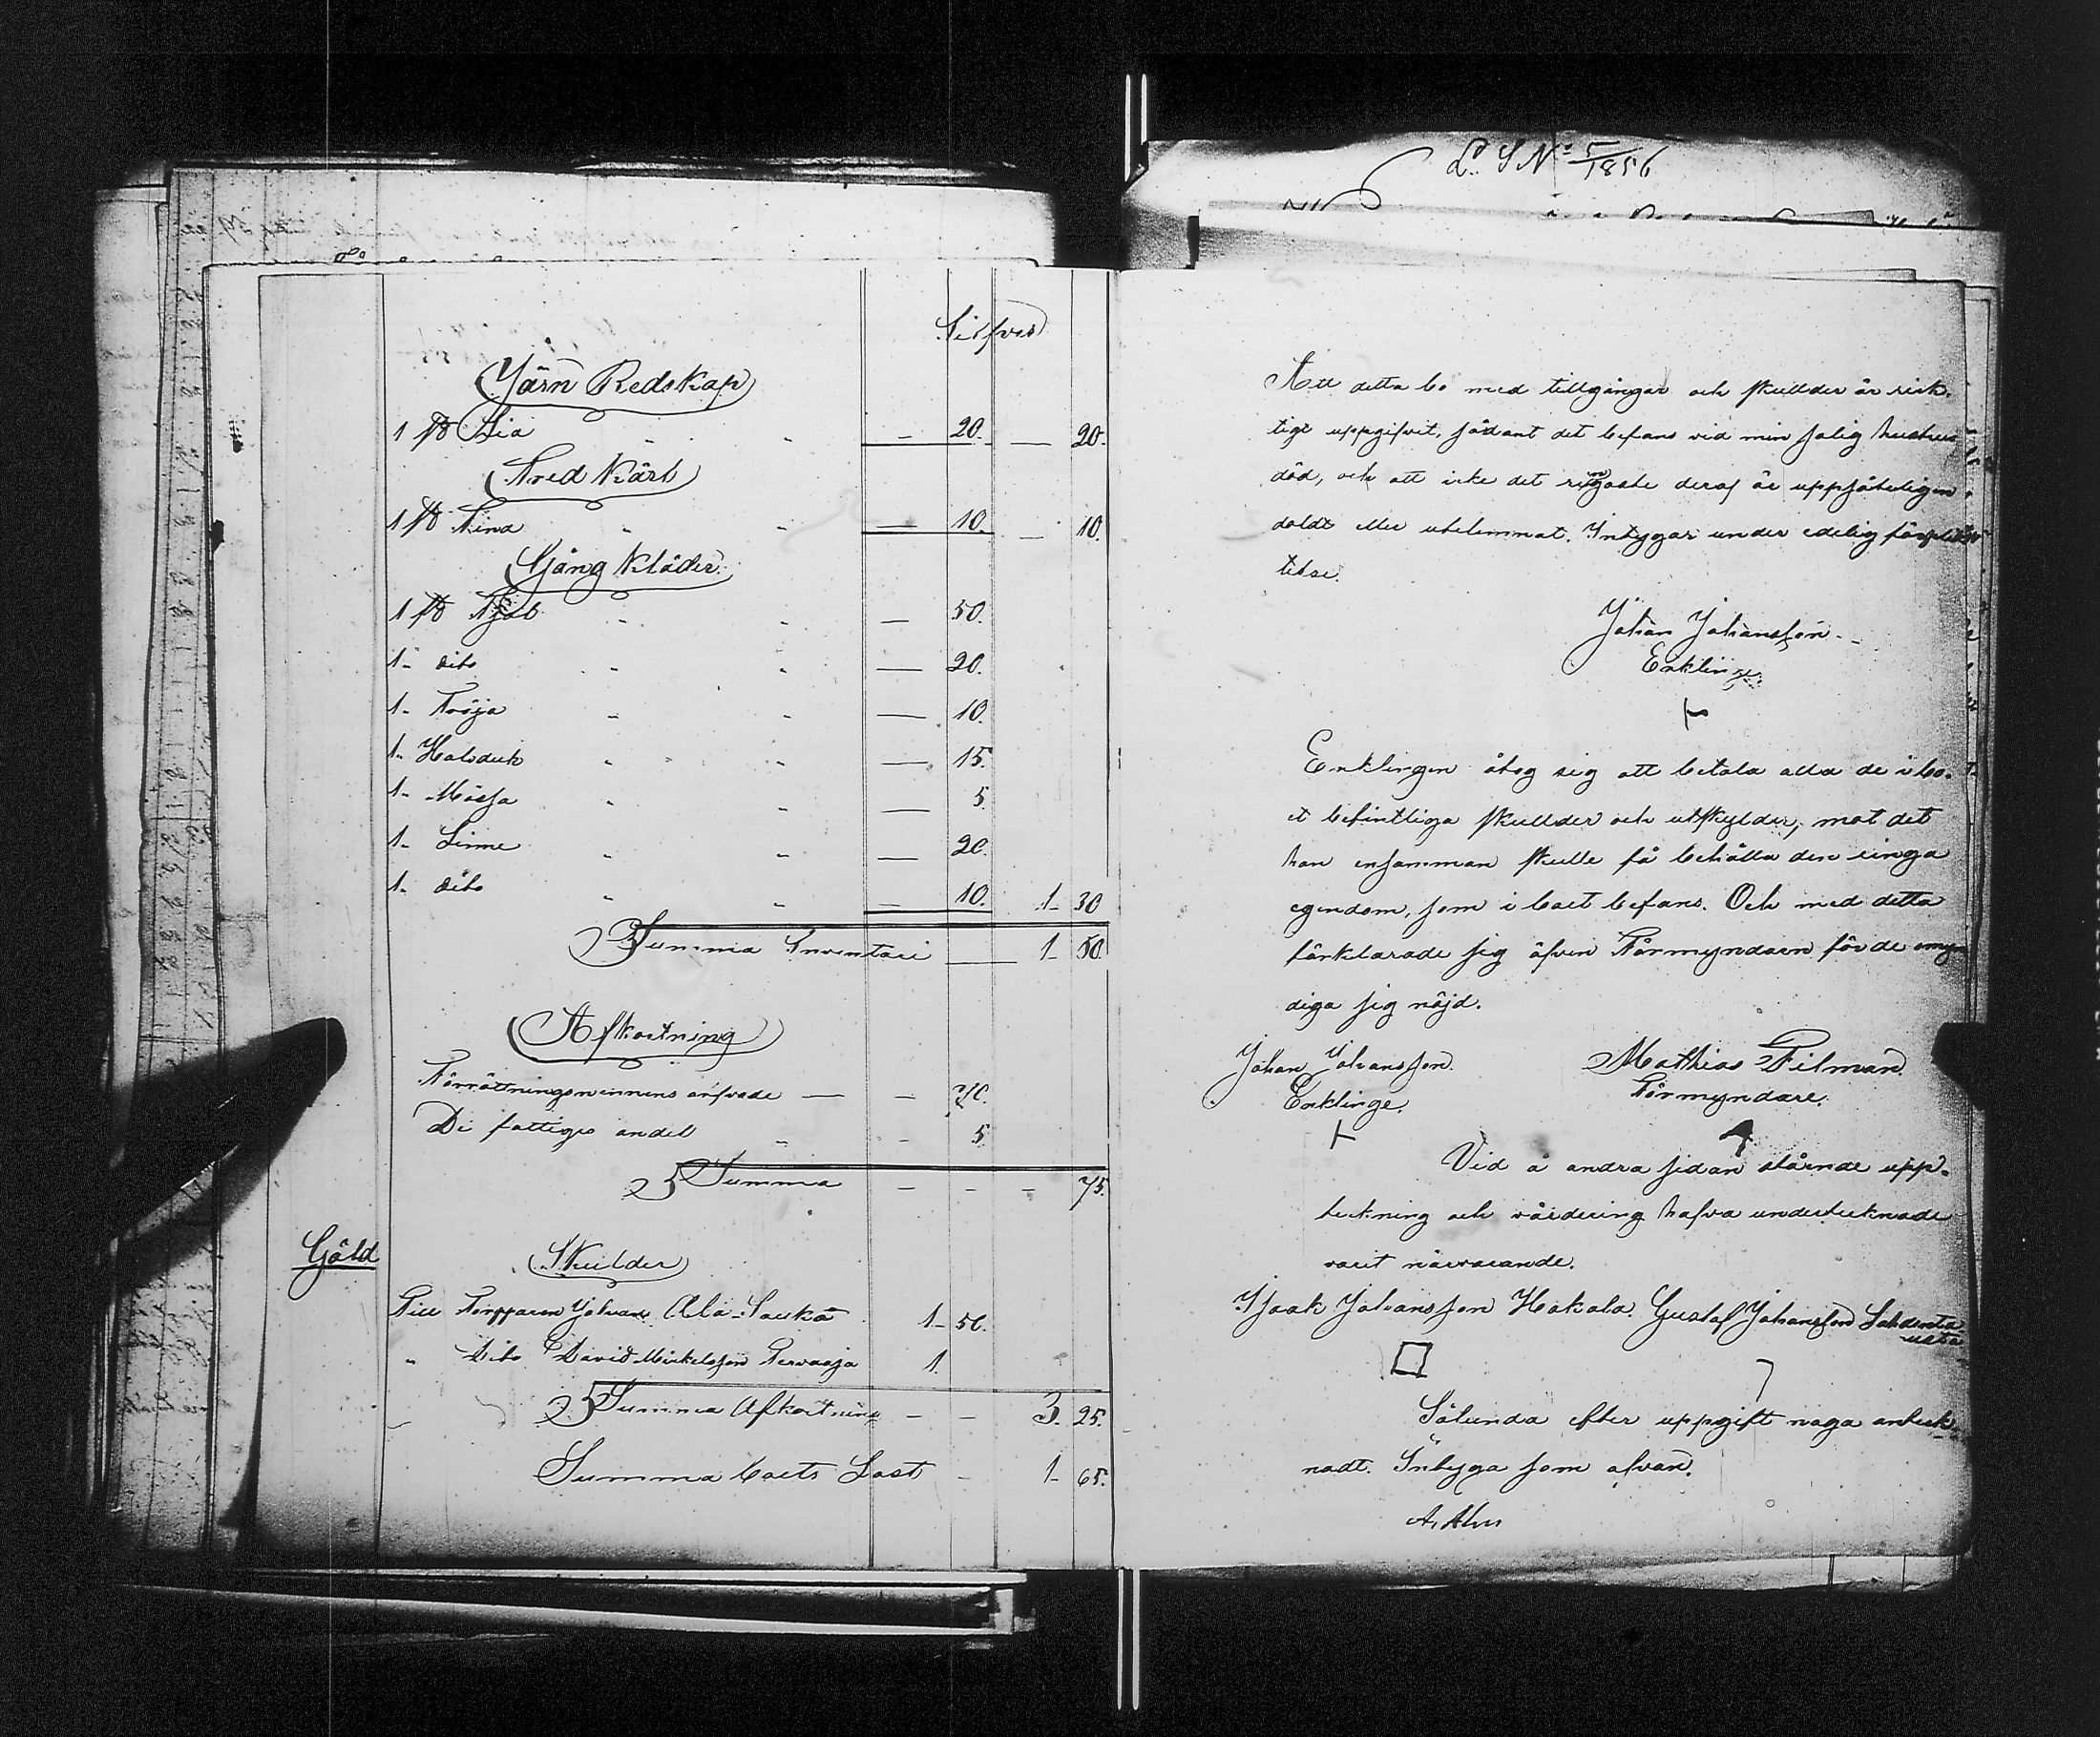 Silfver
Järn Redskap
1 st Lia - - — 20. — 20.
Träd Kärl
1 st Tina - - — 10. — 10.
Gång Kläder.
1 st Kjol - - — 50.
1- dito - - — 20.
1- Tröja - - — 10.
1- Halsduk - - — 15.
1- Mössa - - — 5.
1- Linne - - — 20.
1- dito - - — 10. 1- 30
Summa Inventari — 1- 50.
Afkortning
Förrättningsmannens arfvode — — 70.
De fattiges andel - - 5.
Summa - - - 75.
Gäld
Skulder
Till Torpparen Johan Ala-Saukä 1- 50.
" Dito David Mickelsson Tervaoja 1.
Summa Afkortning - - 3. 25.
Summa boets Last - 1- 65.
L. S No 5/1856
Att detta bo med tillgångar och skullder är rick-
tigt uppgifvit, sådant det befans vid min salig hustrus
död, och att icke det ringaste deraf är uppsåteligen
doldt eller utelemnat. Intygar under edelig förplik
telse.
Johan Johansson.
Enklinge.
Enklingen åtog sig att betala alla de i bo-
et befintliga skullder och utskylder, mot det
han ensamman skulle få behålla den ringa
egendom, som i boet befans. Och med detta
förklarade sig äfven Förmyndaren för de omyn
diga sig nöjd.
Johan Johansson. Mathias Filman
Enklinge. Förmyndare.
Vid å andra sidan stående upp-
teckning och värdering hafva undertecknade
varit närvarande.
Isaak Johansson Hakala. Gustaf Johansson Lahdenta
usta
Sålunda efter uppgift noga anteck-
nadt. Intyga som ofvan.
A. Alm